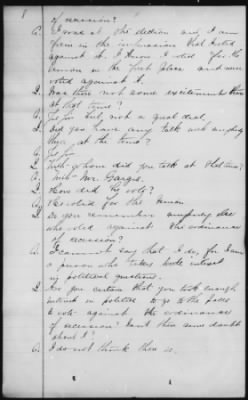 8
of secession?
A. I was at the election and I am
firm in the impression that I voted
against it. I know I voted for the
Union in the first place and never
voted against it.
Q. Was there not some excitement there
at that time?
A. Yes sir but not a great deal.
Q. Did you have any talk with anybody
there at the time?
A. Yes sir
Q. With whom did you talk at that time?
A. With Mr. Gargis.
Q. How did he vote?
A. He voted for the Union.
Q. Do you remember anybody else
who voted against the ordinance
of secession?
A. I cannot say that I do, for I am
a person who takes little interest
in political questions.
Q. Are you certain that you took enough
interest in politics to go to the polls
to vote against the ordinance
of secession? Isn't there some doubt
about it?
A. I do not think there is.